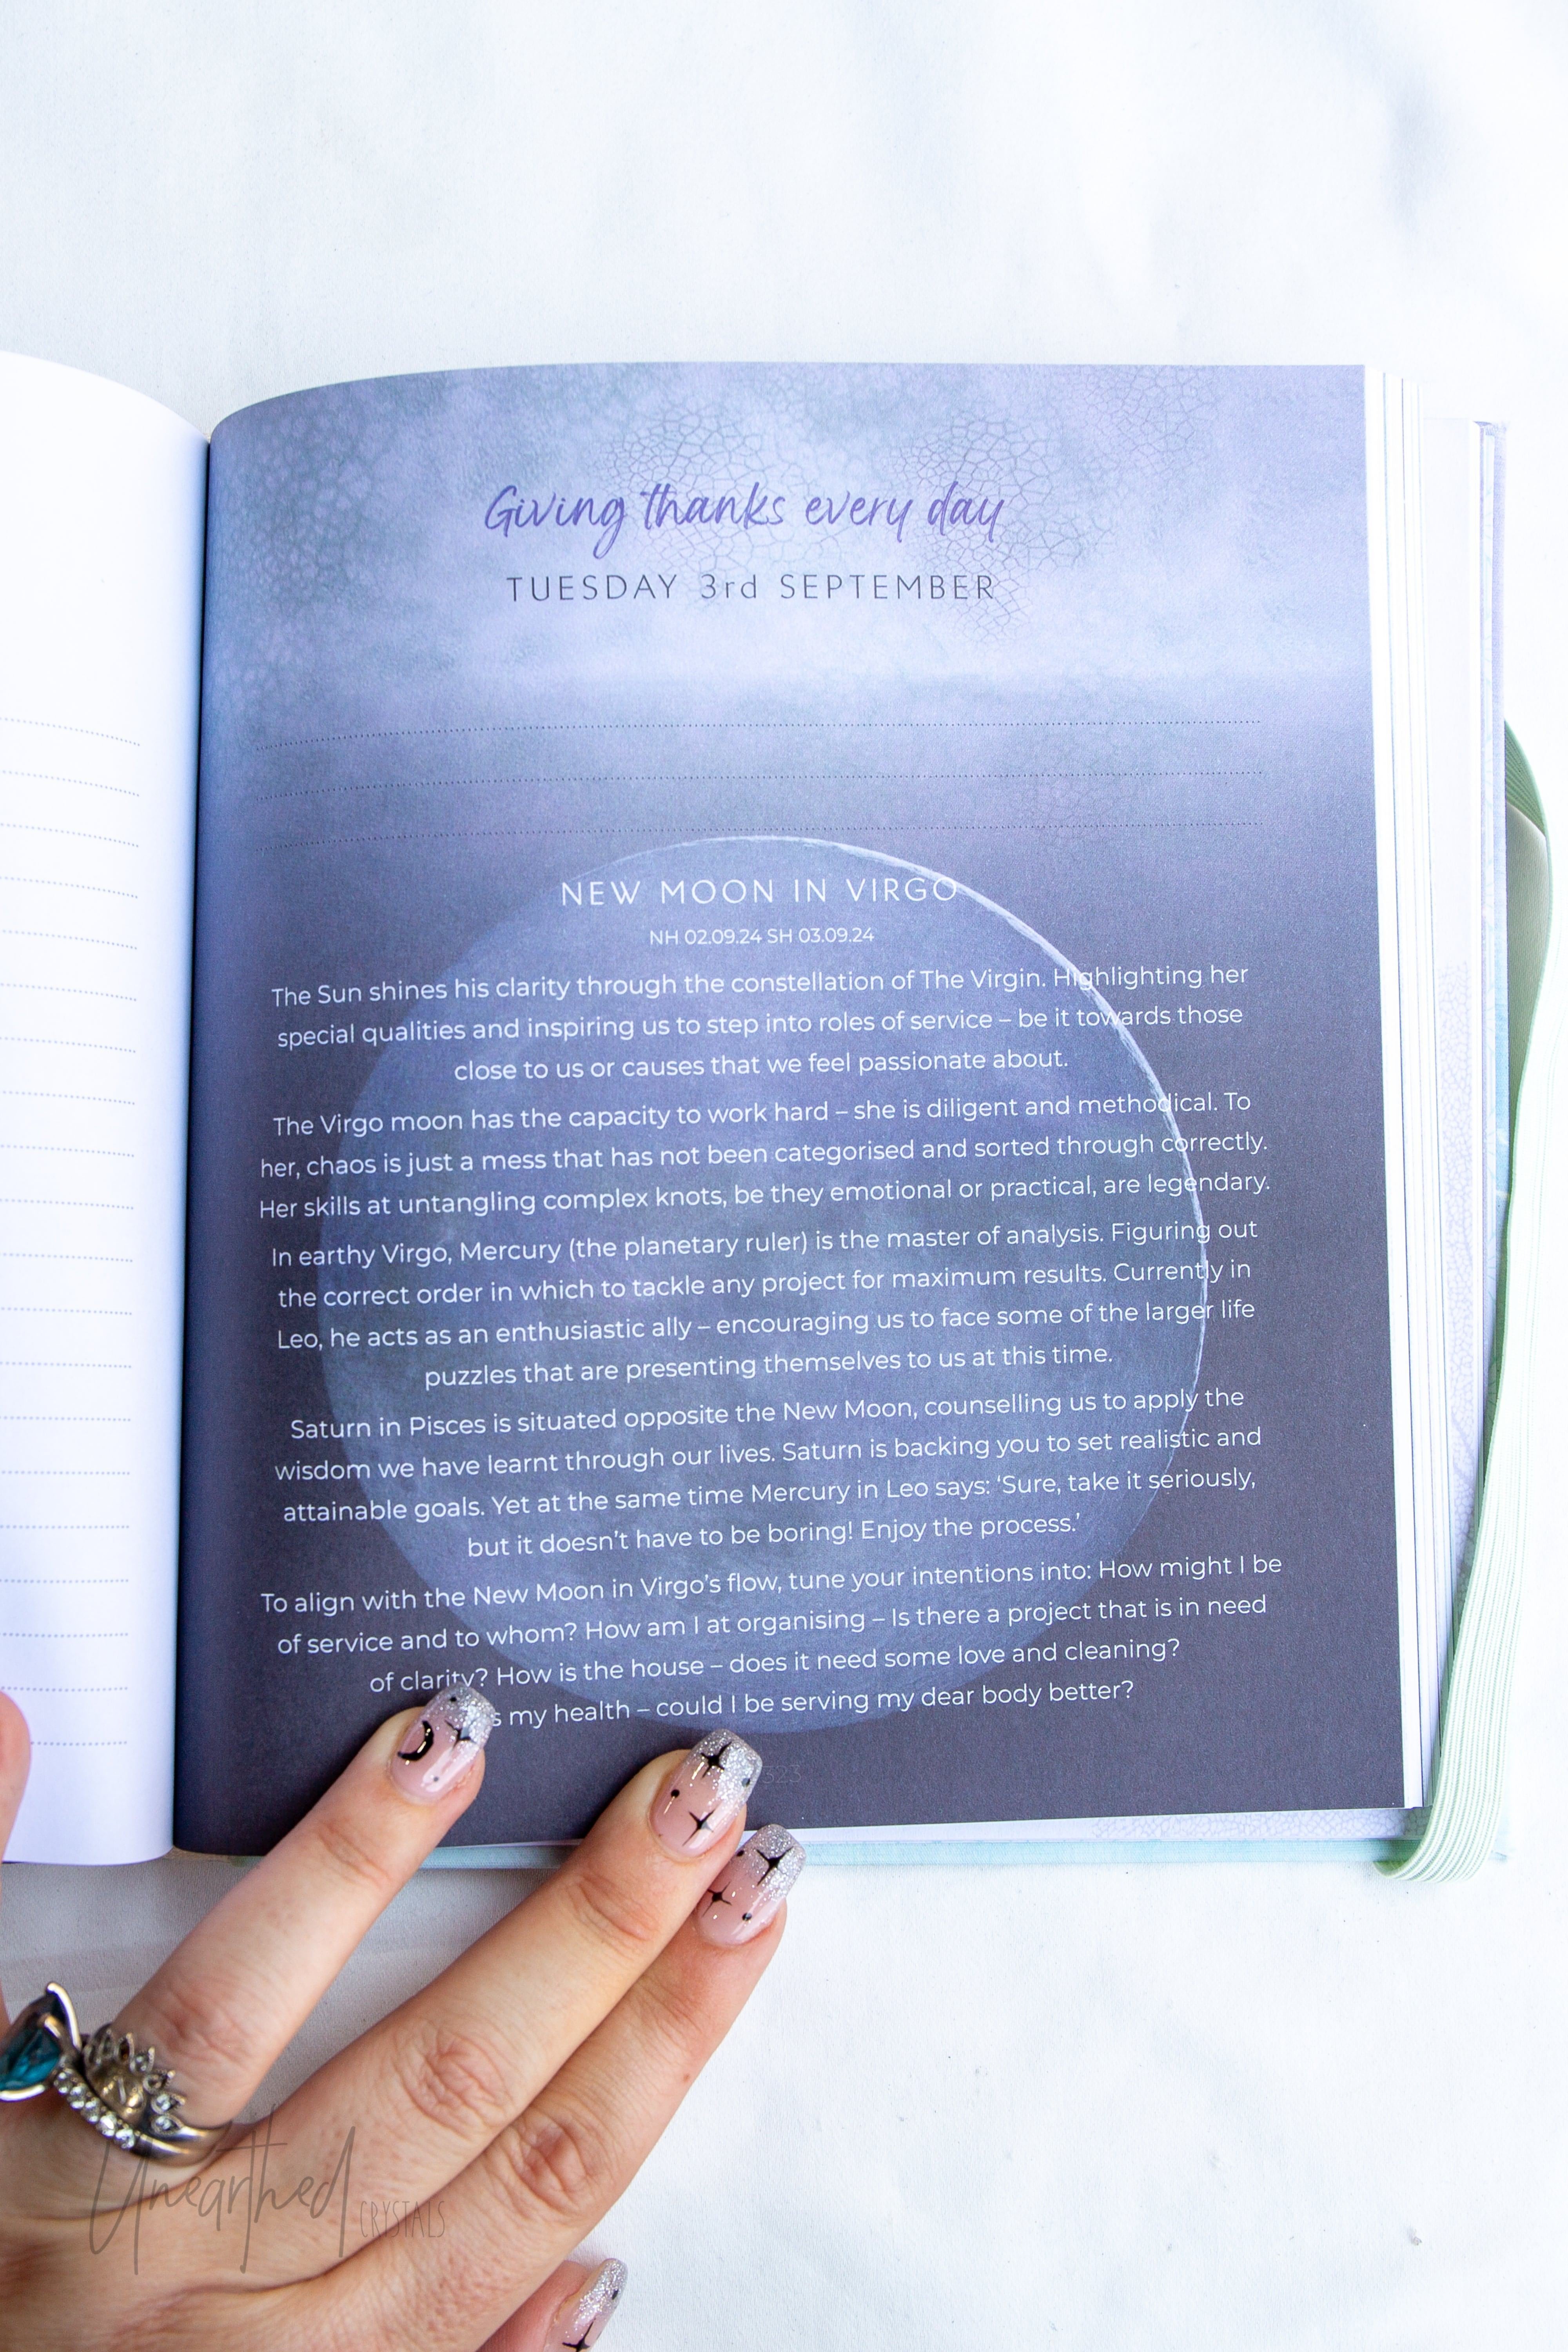 Giving thanks every day
TUESDAY 3rd SEPTEMBER
NEW MOON IN VIRGO
NH 02.09.24 SH 03.09.24
The Sun shines his clarity through the constellation of The Virgin. Highlighting her
special qualities and inspiring us to step into roles of service – be it towards those
close to us or causes that we feel passionate about.
The Virgo moon has the capacity to work hard – she is diligent and methodical. To
her, chaos is just a mess that has not been categorised and sorted through correctly.
Her skills at untangling complex knots, be they emotional or practical, are legendary.
In earthy Virgo, Mercury (the planetary ruler) is the master of analysis. Figuring out
the correct order in which to tackle any project for maximum results. Currently in
Leo, he acts as an enthusiastic ally – encouraging us to face some of the larger life
puzzles that are presenting themselves to us at this time.
Saturn in Pisces is situated opposite the New Moon, counselling us to apply the
wisdom we have learnt through our lives. Saturn is backing you to set realistic and
attainable goals. Yet at the same time Mercury in Leo says: ‘Sure, take it seriously,
but it doesn’t have to be boring! Enjoy the process.’
To align with the New Moon in Virgo’s flow, tune your intentions into: How might I be
of service and to whom? How am I at organising – Is there a project that is in need
of clarity? How is the house – does it need some love and cleaning?
my health – could I be serving my dear body better?
323
Unearthed CRYSTALS